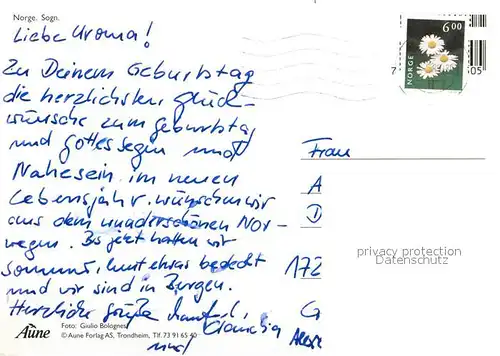 Norge. Sogn.
Liebe Uroma!
Zu Deinem Geburtstag
die herzlichsten Glück-
wünsche zum Geburtstag
und Gottes Segen und
Nahesein im neuen
Lebensjahr. wünschen wir
aus dem wunderschönen Nor-
wegen. Bis jetzt hatten wir
Sommer, heut etwas bedeckt
und wir sind in Bergen.
Herzliche Grüße
Claudia
und
Aune
Foto: Giulio Bolognesi
© Aune Forlag AS, Trondheim, Tlf. 73 91 65 40
NORGE
6 00
7
05
Frau
A
D
privacy protection
Datenschutz
172
G